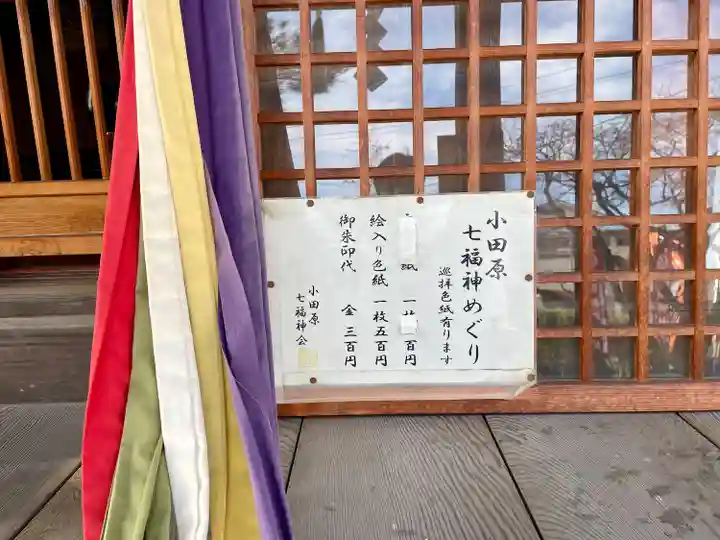 小田原
七福神めぐり
巡拝色紙有ります
紙 一 百円
絵入り色紙 一枚五百円
御朱印代 金 三百円
小田原
七福神会